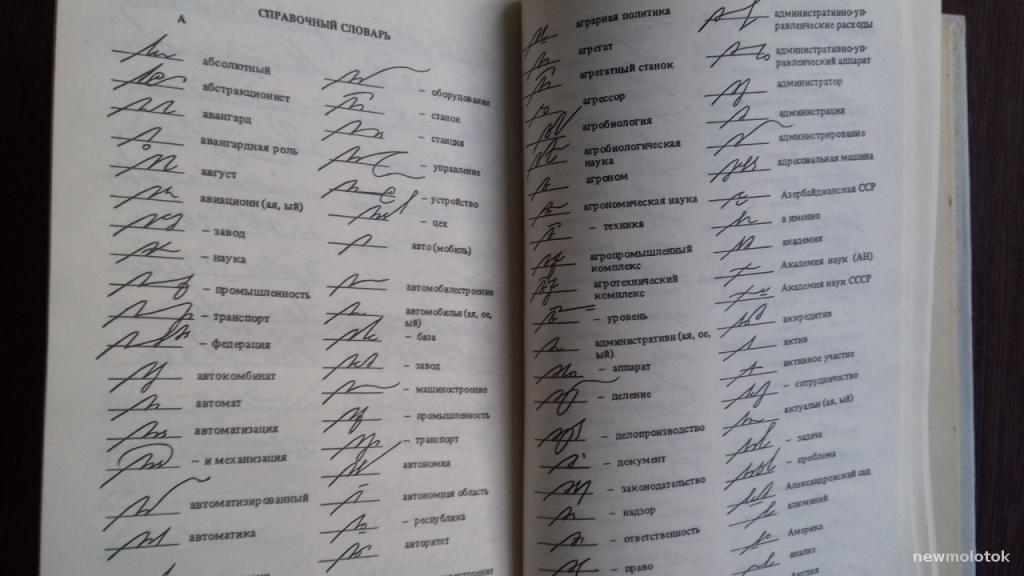 А
СПРАВОЧНЫЙ СЛОВАРЬ
абсолютный
абстракционист
авангард
авангардная роль
август
авиационн (ая, ый)
– завод
– наука
– промышленность
– транспорт
– федерация
автокомбинат
автомат
автоматизация
– и механизация
автоматизированный
автоматика
– оборудование
– станок
– станция
– управление
– устройство
– цех
авто (мобиль)
автомобилестроение
автомобильн (ая, ое,
ый)
– база
– завод
– машиностроение
– промышленность
– транспорт
автономия
автономная область
– республика
авторитет
аграрная политика
агрегат
агрегатный станок
агрессор
агробиология
агробиологическая
наука
агроном
агрономическая наука
– техника
агропромышленный
комплекс
агротехнический
комплекс
– уровень
административн (ая, ое,
ый)
– аппарат
– деление
– делопроизводство
– документ
– законодательство
– надзор
– ответственность
– право
административно-уп-
равленческие расходы
административно-уп-
равленческий аппарат
администратор
администрация
администрирование
адресовальная машина
Азербайджанская ССР
а именно
академия
Академия наук (АН)
Академия наук СССР
аккредитив
актив
активное участие
– сотрудничество
актуальн (ая, ый)
– задача
– проблема
Александровский сад
алюминий
Америка
анализ
Англия
newmolotok